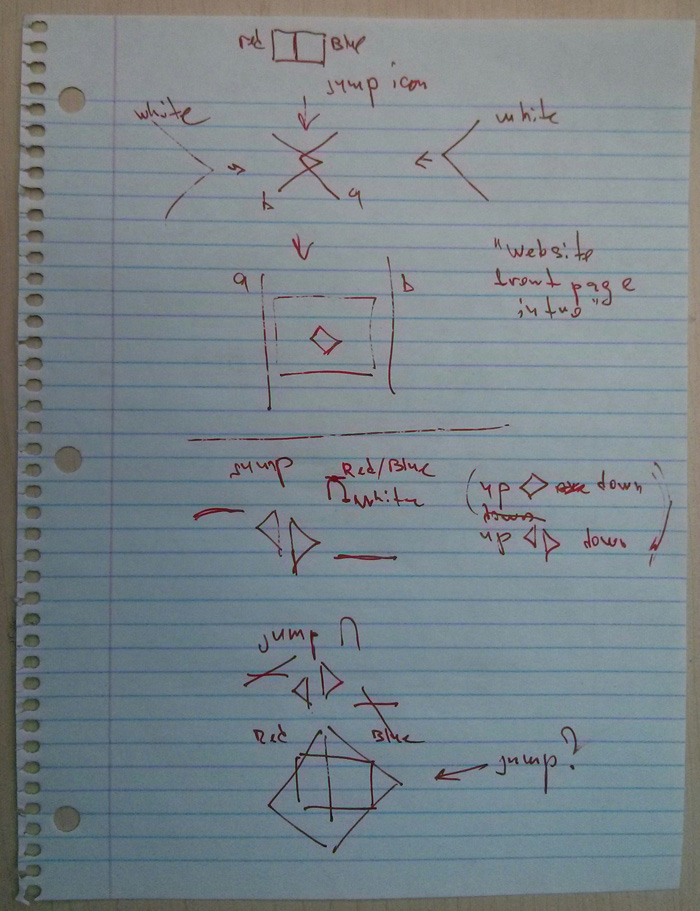 Red Blue
jump icon
white white
b a
a b
"website
front page
intro"
jump
Red/Blue
white
(up down
up down)
jump
Red Blue
jump?